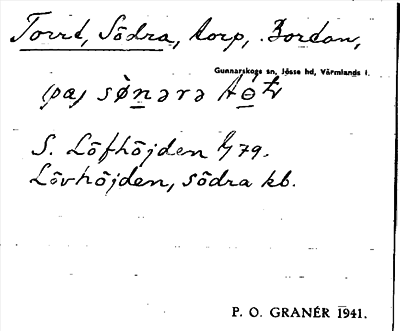 Torrt, Södra, torp, Bordan,
Gunnarskogs sn, Jösse hd, Värmlands l.
(pa) sø̀nərə
S. Löfhöjden 79.
Lövhöjden, södra kb.
P. O. GRANÉR 1941.